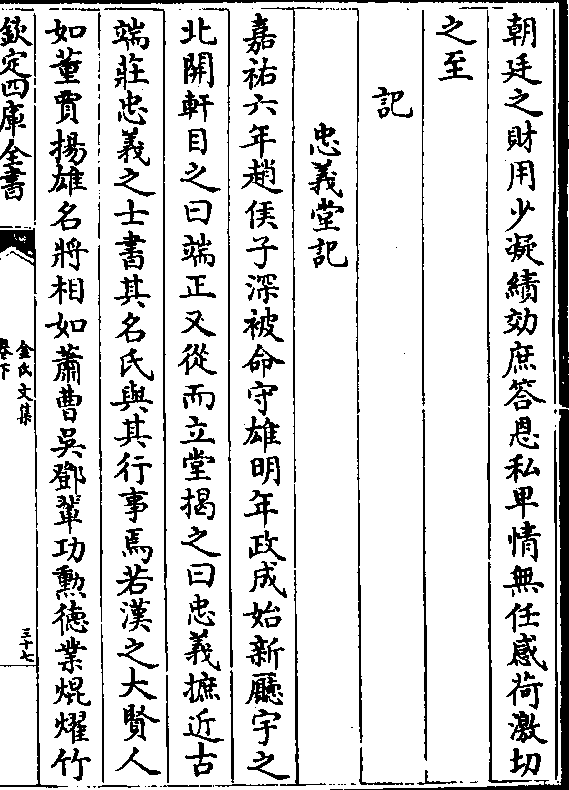 朝廷之財用少凝績効庶答恩私卑情無任感荷激切
之至
記
忠義堂記
嘉祐六年趙侯子深被命守雄明年政成始新廳宇之
北開軒目之曰端正又從而立堂揭之曰忠義摭近古
端莊忠義之士書其名氏與其行事焉若漢之大賢人
如董賈揚雄名將相如蕭曹吳鄧輩功勲徳業焜燿竹
欽定四庫全書
金氏文集
卷下
三十七